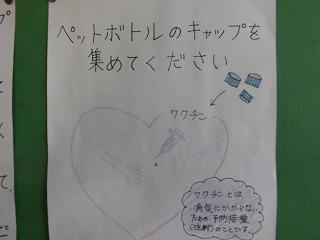 ペットボトルのキャップを
集めてください
ワクチン
ワクチンとは、
病気にかからない
ための予防接種
(注射)のことです。